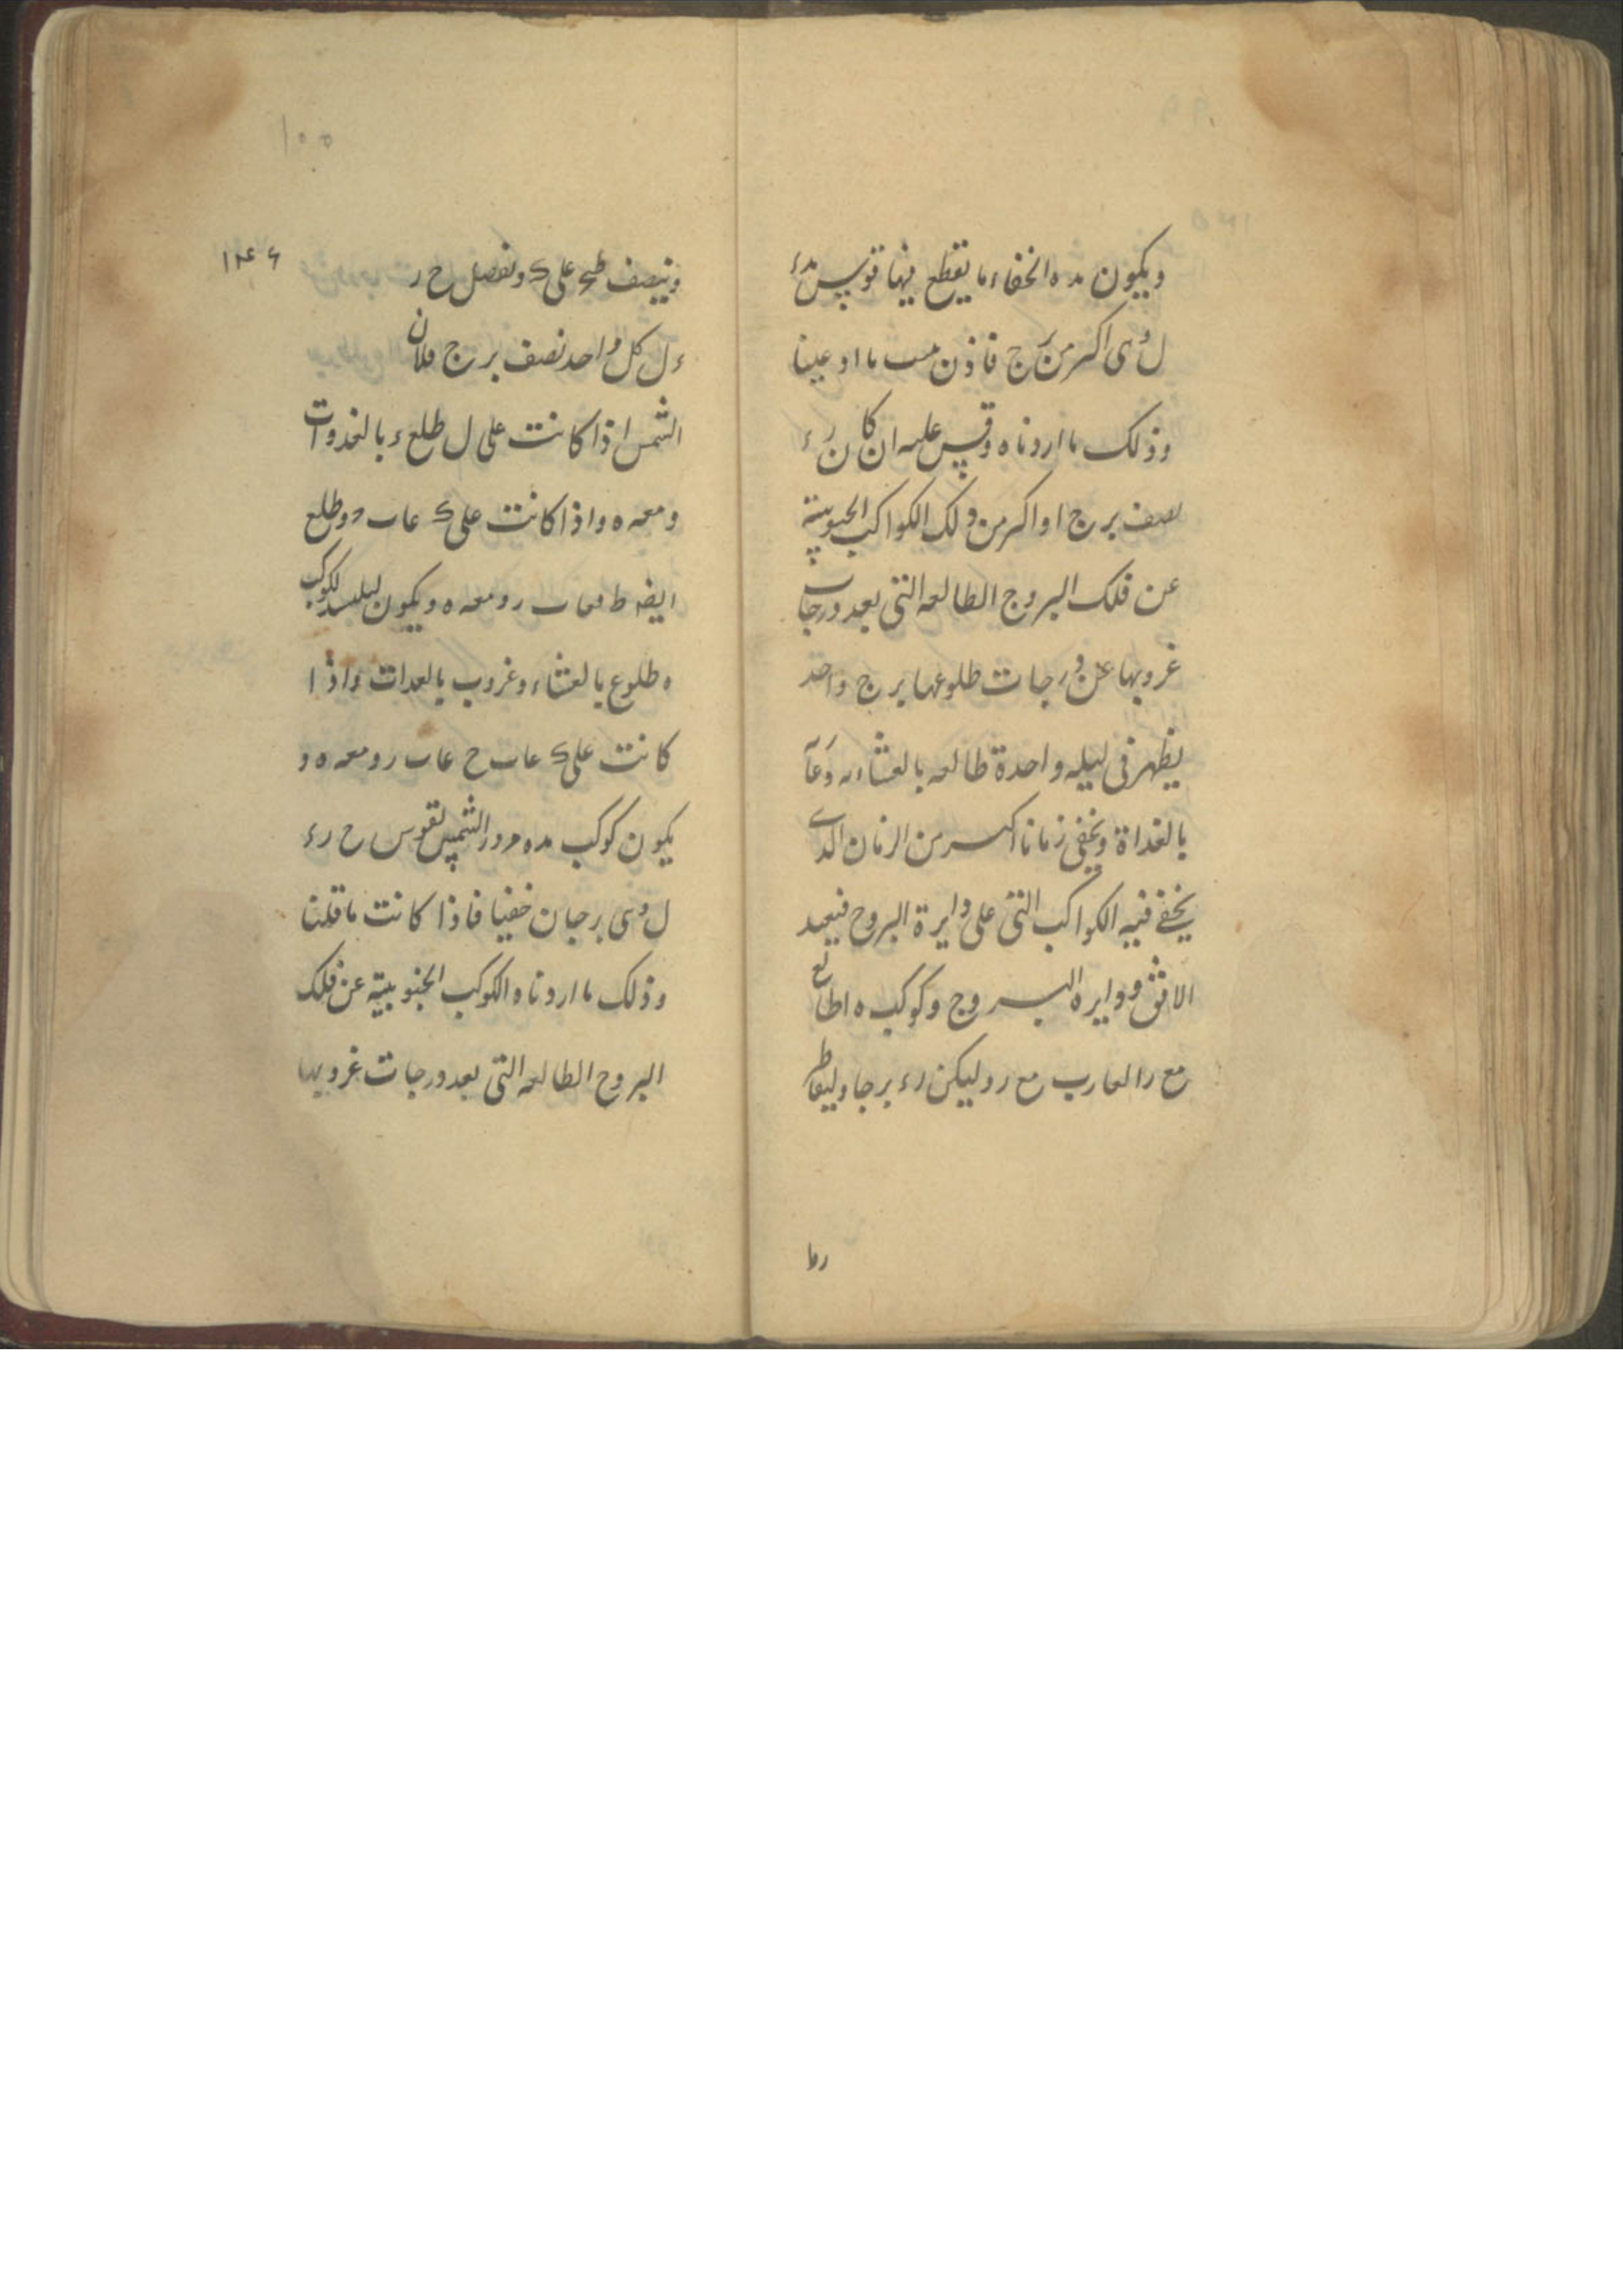 ويكون مده الخفاء ما يقطع فيها قوس
ل وهى اكثر من ج فاذن ما ادعينا
وذلك ما اردناه وقس عليه ان كان رء
نصف برج او اكثر من ذلك الكواكب الجنوبية
عن فلك البروج الطالعه التى بعد درجات
غروبها عن درجات طلوعها برج واحد
يظهر فى ليله واحدة طالعه بالعشاء
بالغداة ويخفى زمانا اكثر من الزمان الذى
يخفى فيه الكواكب التى على دايرة البروج فنعيد
الافق ودايره البروج وكوكب ه الطالع
مع ر الغارب مع ر وليكن رء برجا وليقاطر
رط
۱۰۰
۱۴۶
وينصف على ك ونفصل ح ر
ء ل كل واحد نصف برج فلان
الشمس اذا كانت على ل طلع ء بالغدوات
ومعه ه واذا كانت على ك غاب د وطلع
ايضا ط فغاب ر ومعه ه ويكون لكوكب
ه طلوع بالعشاء وغروب بالعدات واذا
كانت على ك غاب ح غاب ر ومعه ه و
يكون كوكب مده مرور الشمس لقوس ح رء
ل وهى برجان خفيا فاذا كانت ما قلنا
وذلك ما اردناه الكوكب الجنوبية عن فلك
البروج الطالعه التى بعد درجات غروبها